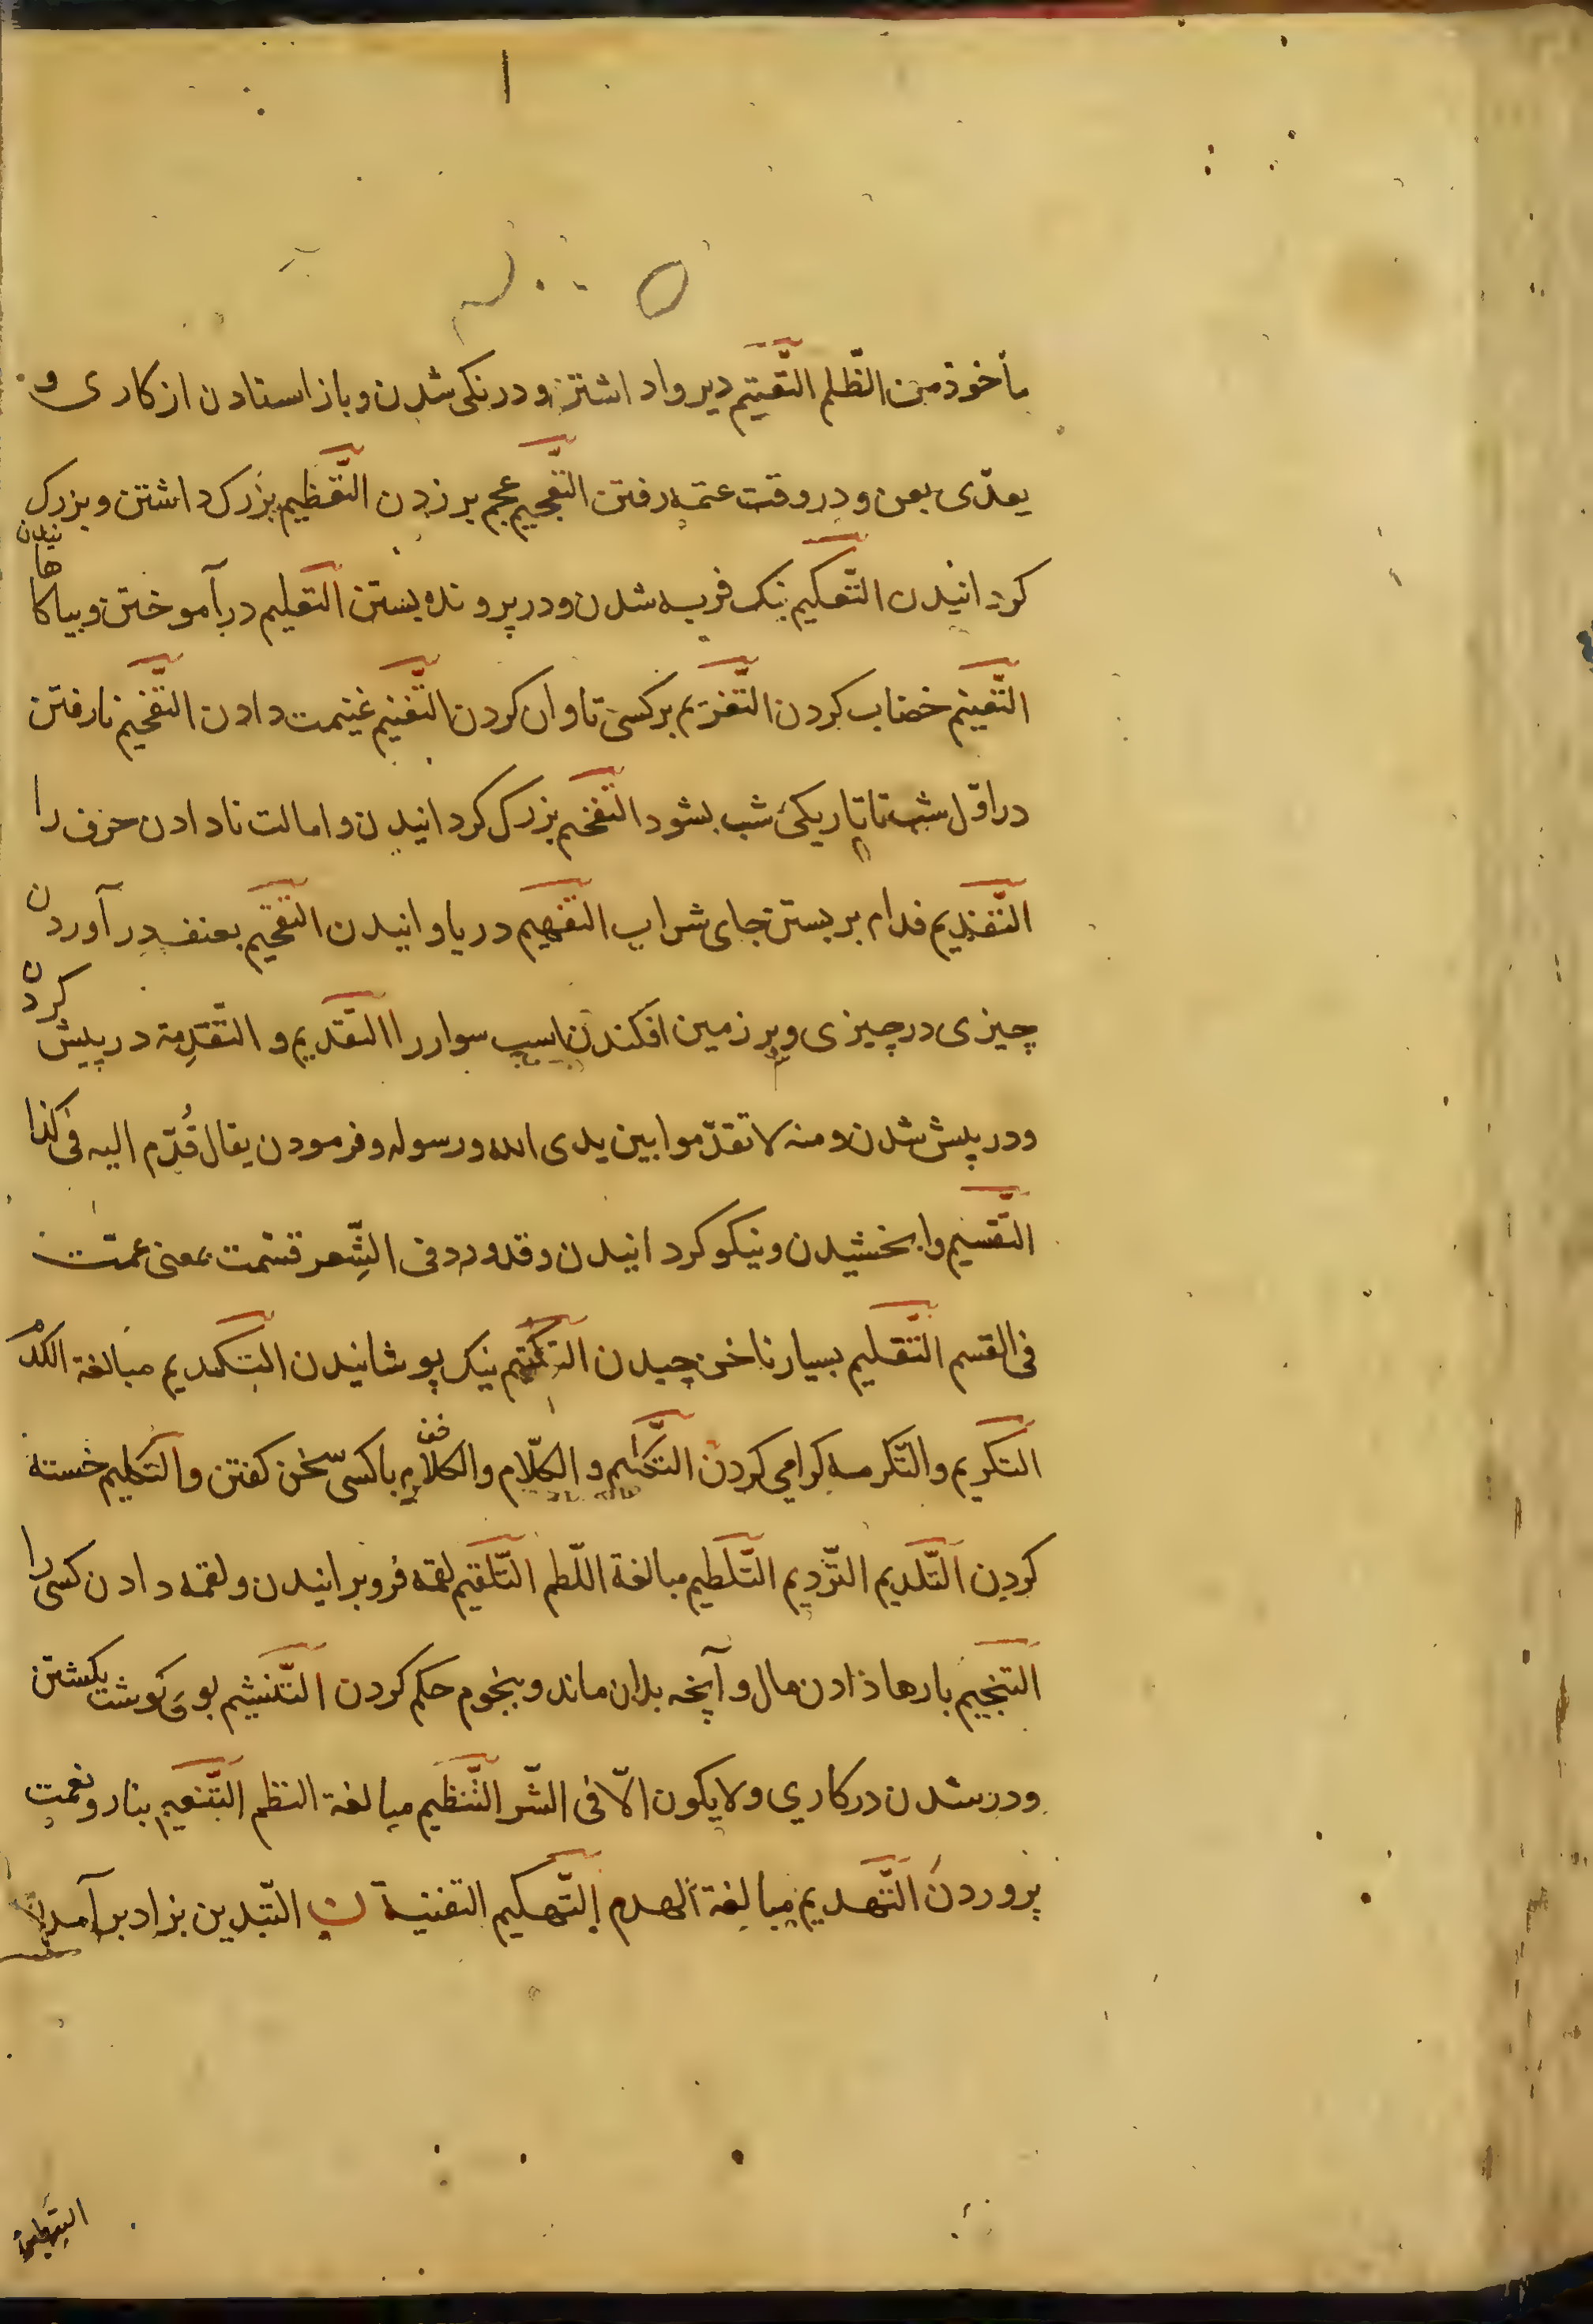 مأخوذ من الظّلم التّعتیم دیر واداشتن و درنکی شدن و باز استادن از کاری و
یعدّی بعن و در وقت عتمه رفتن التّعجیم عجم بر زدن التّعظیم بزرک داشتن و بزرک
کردانیدن التّعکیم نیک فربه شدن و در پرونده بستن التّعلیم درآموختن و بیاکاهانیدن
التّعنیم خضاب کردن التّغریم بر کسی تاوان کردن التّغنیم غنیمت دادن التّفحیم نارفتن
در اوّل شب تا تاریکی شب بشود التّفخیم بزرک کردانیدن و امالت نادادن حرف را
التّفدیم فدام بر بستن جای شراب التفهیم دریاوانیدن التّقحیم بعنف درآوردن
چیزی در چیزی و بر زمین افکندن اسب سوار را التّقدیم و التّقدِمة در پیش کردن
و در پیش شدن و منه لا تقدّموا بین یدی الله و رسوله و فرمودن یقال قُدّم الیه فی کذا
التّقسیم وابخشیدن و نیکو کردانیدن و قد ورد فی الشِّعر قسّمت بمعنی عمّت
فی القسم التّقلیم بسیار ناخن چیدن التّکتیم نیک پوشانیدن التّکدیم مبالغة الکدم
التّکریم و التّکرمه کرامی کردن التّکلیم و الکلّام و الکلام خف با کسی سخن کفتن و التّکلیم خسته
کردن التّلدیم التّردیم التّلطیم مبالغة اللّطم التّلقیم لقمه فرو برانیدن و لقمه دادن کسی را
التنجیم بارها دادن مال و آنچه بدان ماند و بنجوم حکم کردن التّنشیم بوی کوشت بکشتن
و در شدن در کاری و لا یکون الّا فی الشّر التّنظیم مبالغة النظم التّنعیم بناز و نعمت
پروردن التّهدیم مبالغة الهدم التّهکیم التغنیة ن التّبدین بزاد بر آمدن